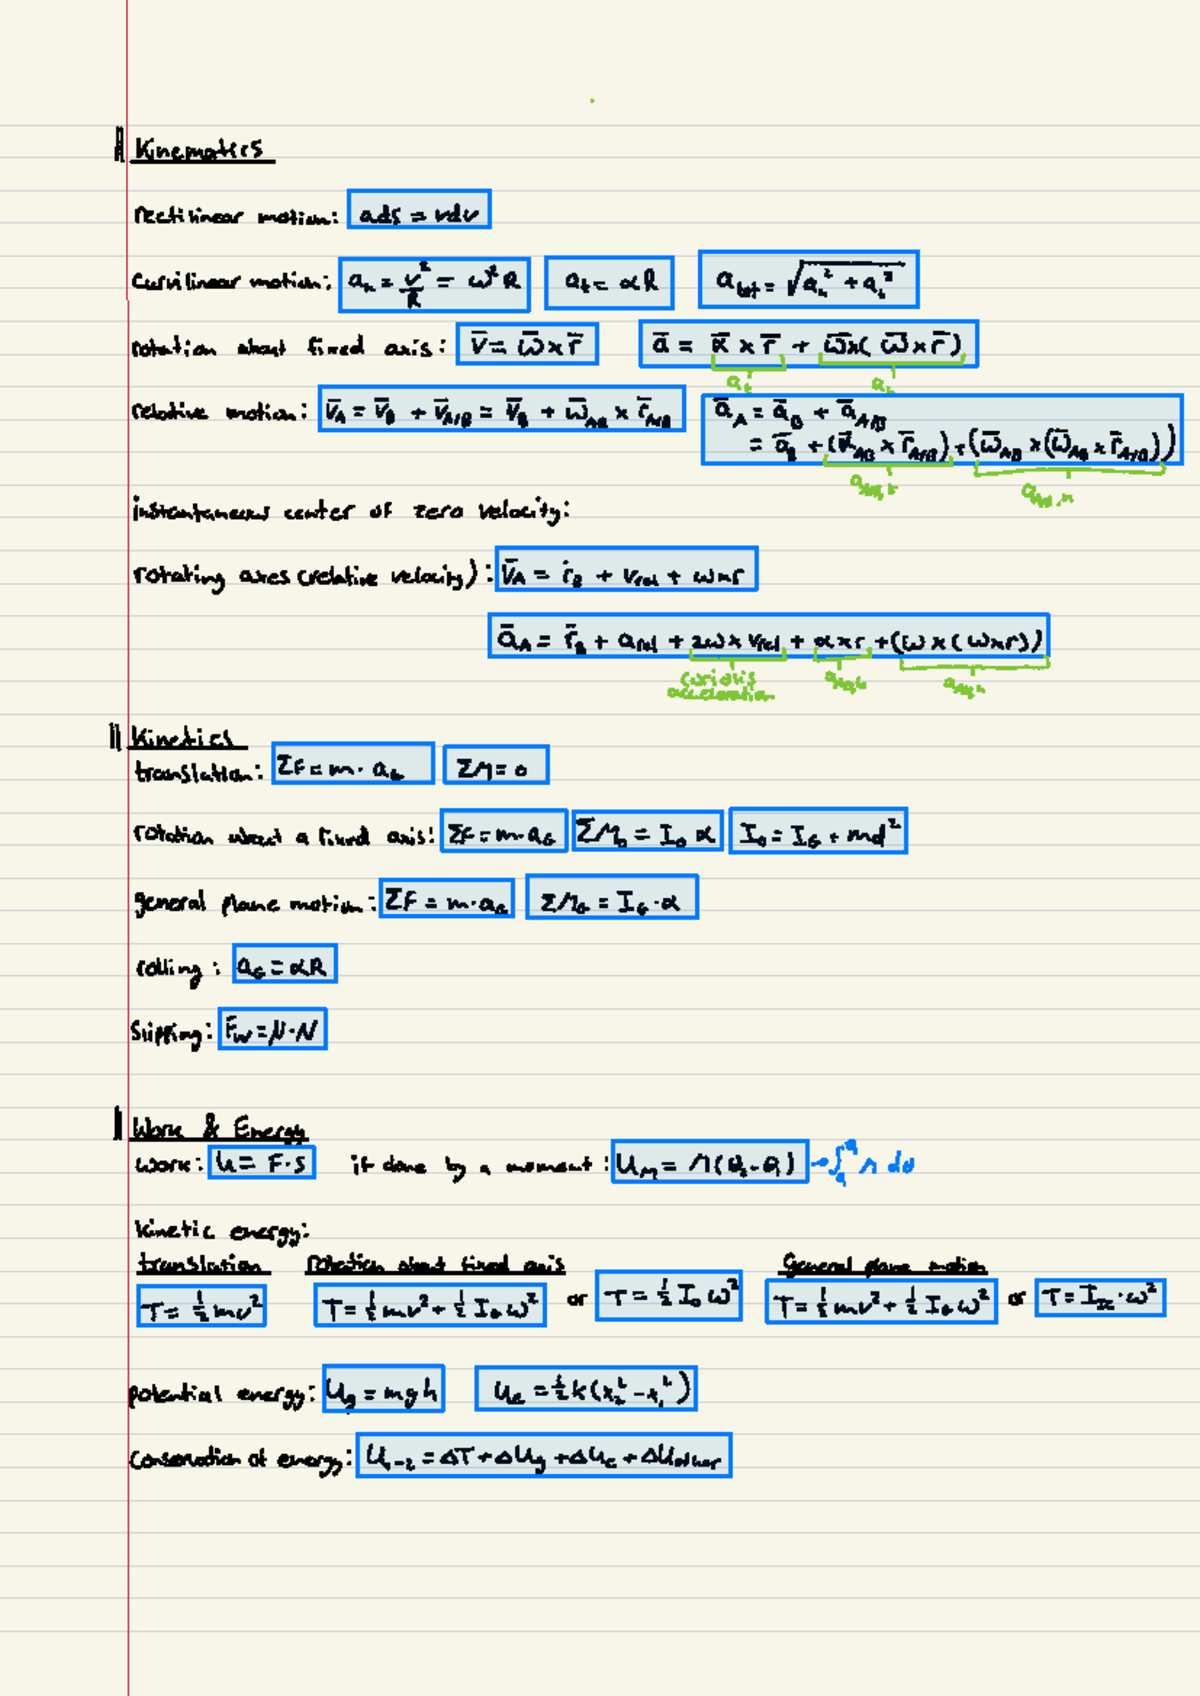 Kinematics
rectilinear motion: ads = vdv
curvilinear motion: aₙ = v²/R = ω²R   aₜ = αR   a_tot = √(aₙ² + aₜ²)
rotation about fixed axis: v̄ = ω̄ × r̄   ā = ᾱ × r̄ + ω̄×(ω̄ × r̄)
aₜ   aₙ
relative motion: v̄_A = v̄_B + v̄_A/B = v̄_B + ω̄_AB × r̄_A/B   ā_A = ā_B + ā_A/B
= ā_B + (ᾱ_AB × r̄_A/B) + (ω̄_AB × (ω̄_AB × r̄_A/B))
a_A/B,t   a_A/B,n
instantaneous center of zero velocity:
rotating axes (relative velocity): v̄_A = ṙ_B + v_rel + ω×r
ā_A = r̈_B + a_rel + 2ω × v_rel + α × r + (ω × (ω×r))
coriolis
acceleration
Kinetics
translation: ΣF = m · a_G   ΣM = 0
rotation about a fixed axis: ΣF = m·a_G   ΣM₀ = I₀ α   I₀ = I_G + md²
general plane motion: ΣF = m·a_G   ΣM_G = I_G · α
rolling: a_G = αR
Slipping: F_w = μ·N
Work & Energy
work: U = F·s   if done by a moment: U_M = M(θ₂ - θ₁) → ∫ M dθ
kinetic energy:
translation   rotation about fixed axis   General plane motion
T = ½mv²   T = ½mv² + ½I_Gω²   or   T = ½I₀ω²   T = ½mv² + ½I_Gω²   or   T = I_IC · ω²
potential energy: U_g = mgh   U_e = ½k(x₂² - x₁²)
conservation of energy: U₁₋₂ = ΔT + ΔU_g + ΔU_e + ΔU_other